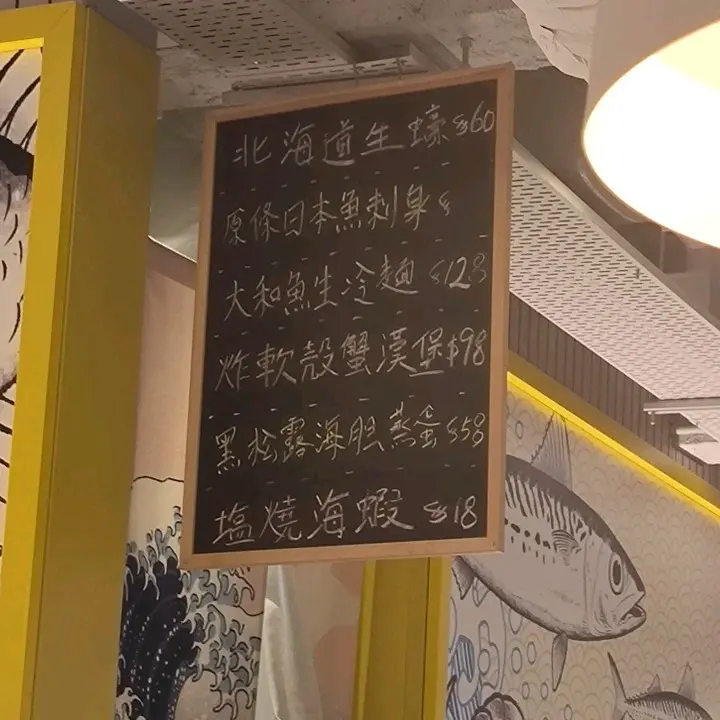 北海道生蠔 $60
原條日本魚刺身 $
大和魚生冷麵 $128
炸軟殼蟹漢堡 $98
黑松露海胆蒸蛋 $58
塩燒海蝦 $18